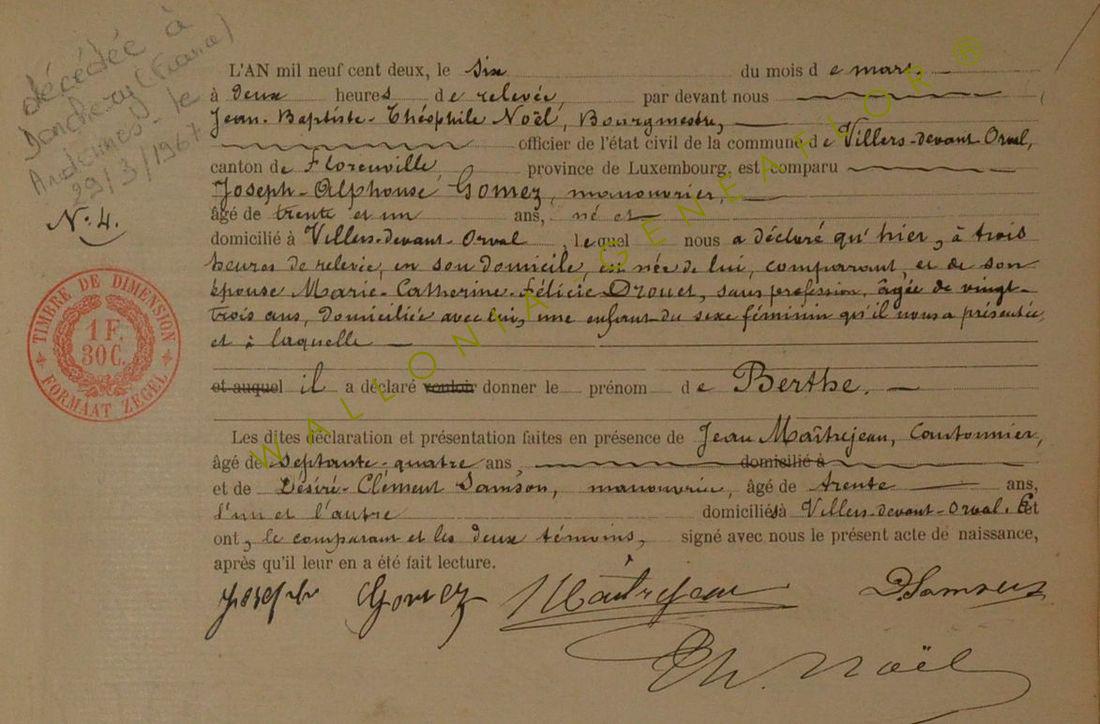 décédée à
Donchery (France)
Ardennes - le
29/3/1967
N° 4.
L'AN mil neuf cent deux, le six du mois de mars
à deux heures de relevée, par devant nous
Jean-Baptiste-Théophile Noël, Bourgmestre,
officier de l'état civil de la commune de Villers-devant-Orval,
canton de Florenville, province de Luxembourg, est comparu
Joseph-Alphonse Gomez, manouvrier,
âgé de trente et un ans, né et
domicilié à Villers-devant-Orval, lequel nous a déclaré qu'hier, à trois
heures de relevée, en son domicile, est née de lui, comparant, et de son
épouse Marie-Catherine-Félicie Drouet, sans profession, âgée de vingt-
trois ans, domiciliée avec lui, une enfant du sexe féminin qu'il nous a présentée
et à laquelle
et auquel il a déclaré vouloir donner le prénom de Berthe.
Les dites déclaration et présentation faites en présence de Jean Maîtrejean, Cantonnier,
âgé de septante-quatre ans, domicilié à
et de Désiré-Clément Samson, manouvrier, âgé de trente ans,
l'un et l'autre domiciliés à Villers-devant-Orval. Et
ont, le comparant et les deux témoins, signé avec nous le présent acte de naissance,
après qu'il leur en a été fait lecture.
Joseph Gomez Maîtrejean D. Samson
Th. Noël
TIMBRE DE DIMENSION
1 F.
30 C.
FORMAAT ZEGEL
WALLONIA GENEAFLOR ®